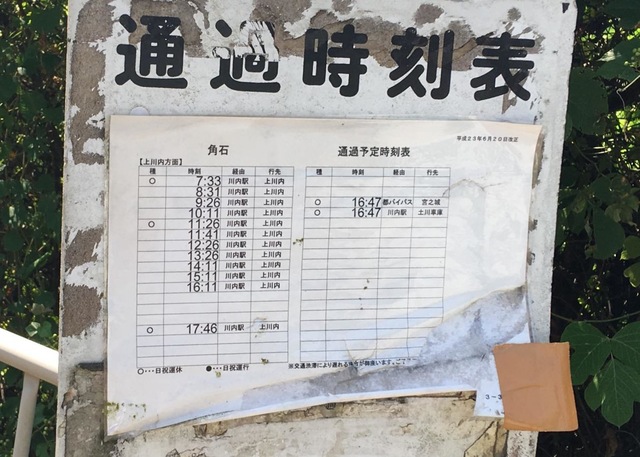 通過時刻表
平成23年6月20日改正
角石 通過予定時刻表
【上川内方面】
種 時刻 経由 行先 種 時刻 経由 行先
○ 7:33 川内駅 上川内
8:31 川内駅 上川内
9:26 川内駅 上川内 ○ 16:47 都バイパス 宮之城
10:11 川内駅 上川内 ○ 16:47 川内駅 土川車庫
○ 11:26 川内駅 上川内
11:41 川内駅 上川内
12:26 川内駅 上川内
13:26 川内駅 上川内
14:11 川内駅 上川内
15:11 川内駅 上川内
16:11 川内駅 上川内
○ 17:46 川内駅 上川内
○・・・日祝運休 ●・・・日祝運行 ※交通渋滞により遅れる場合が御座います。